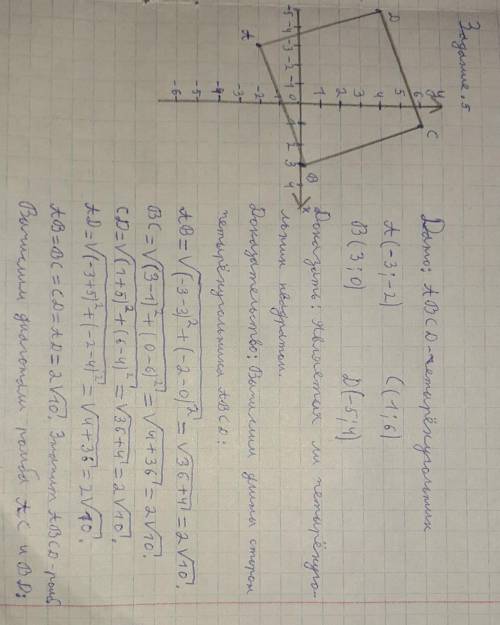 Задание.5
y
6
5
4
3
2
1
0
-1
-2
-3
-4
-5
-6
-5 -4 -3 -2 -1 1 2 3 4 x
A B C D
Дано: ABCD-четырёхугольник
A(-3;-2) C(-1;6)
B(3;0) D(-5;4)
Доказать: Является ли четырёхуго-
льник квадратом.
Доказательство: Вычислим длины сторон
четырёхугольника ABCD:
AB=√(-3-3)²+(-2-0)²=√36+4=2√10.
BC=√(3-1)²+(0-6)²=√4+36=2√10.
CD=√(1+5)²+(6-4)²=√36+4=2√10.
AD=√(-3+5)²+(-2-4)²=√4+36=2√10.
AB=BC=CD=AD=2√10. Значит ABCD-ромб
Вычислим диагонали ромба AC и BD: